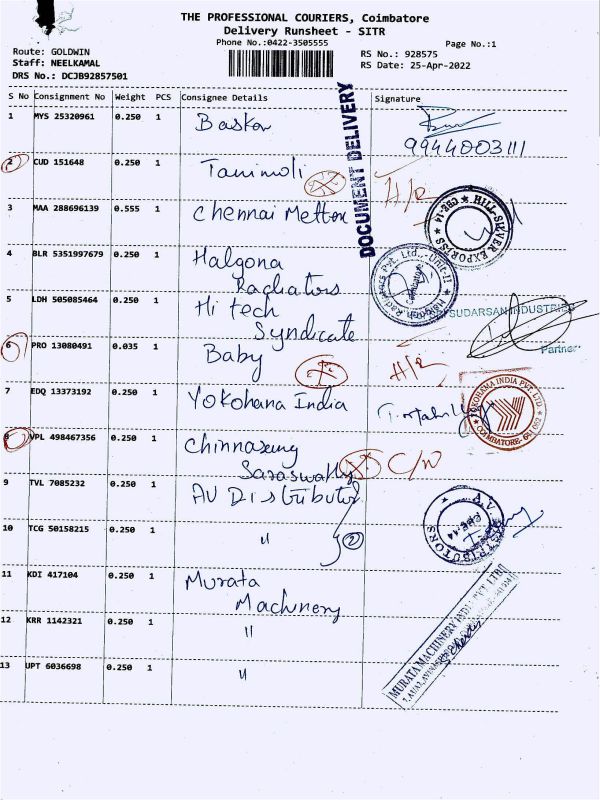 THE PROFESSIONAL COURIERS, Coimbatore
Delivery Runsheet - SITR
Phone No.:0422-3505555
Page No.:1
Route: GOLDWIN
Staff: NEELKAMAL
DRS No.: DCJB92857501
RS No.: 928575
RS Date: 25-Apr-2022
S No Consignment No Weight PCS Consignee Details Signature
1 MYS 25320961 0.250 1 Baskar
9944003111
2 CUD 151648 0.250 1 H/R
DOCUMENT DELIVERY
3 MAA 288696139 0.555 1 Chennai Mettex
HILL-SEVEN EXPORESS CBE-14
4 BLR 5351997679 0.250 1 Halgona
Radiators
Radiators Pvt. Ltd., Unit-II
Coimbatore
5 LDH 505085464 0.250 1 Hi tech
Syndicate
SUDARSAN INDUSTRIES
Partner
6 PRO 13080491 0.035 1 Baby H/R
7 EDQ 13373192 0.250 1 Yokohana India
YOKOHAMA INDIA PVT LTD
COIMBATORE
8 VPL 498467356 0.250 1 Chinnaxung
Saraswathy C/N
9 TVL 7085232 0.250 1 AV Distributor
A.V. DISTRIBUTORS CBE-14
10 TCG 50158215 0.250 1 " 2
11 KDI 417104 0.250 1 Murata
Machinery
MURATA MACHINERY INDIA PVT LTD
12 KRR 1142321 0.250 1 "
13 UPT 6036698 0.250 1 "